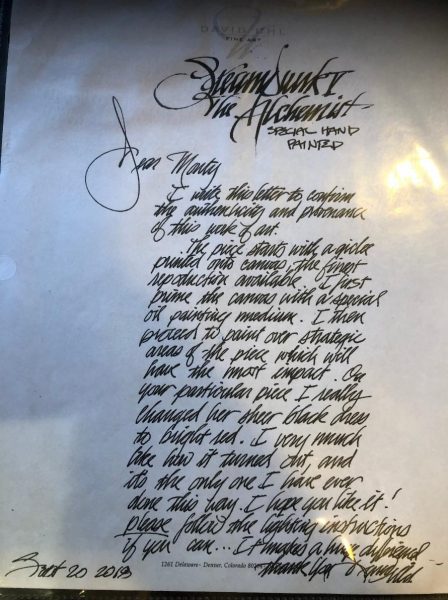 DAVID UHL
FINE ART
Steampunk V
The Alchemist
SPECIAL HAND
PAINTED
Dear Marty
I write this letter to confirm
the authenticity and provonance
of this work of art.
The piece starts with a giclee
printed onto canvas, the finest
reproduction available. I first
prime the canvas with a special
oil painting medium. I then
proceed to paint over strategic
areas of the piece which will
have the most impact. On
your particular piece I really
changed her sheer black dress
to bright red. I very much
like how it turned out, and
it's the only one I have ever
done this way. I hope you like it!
please follow the lighting instructions
if you can... It makes a huge difference
Thank you David Uhl
Sept 20 2013
1261 Delaware - Denver, Colorado